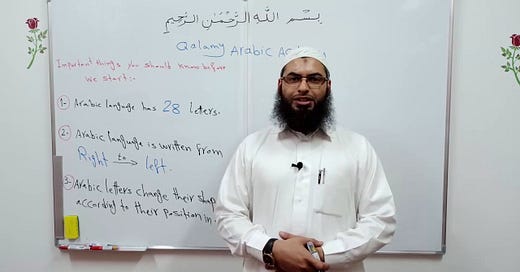 بسم الله الرحمن الرحيم
Qalamy Arabic Ac
Important things you should know before
we start:-
1- Arabic language has 28 letters.
2- Arabic language is written from
Right to left.
3- Arabic letters change their shap
according to their position in